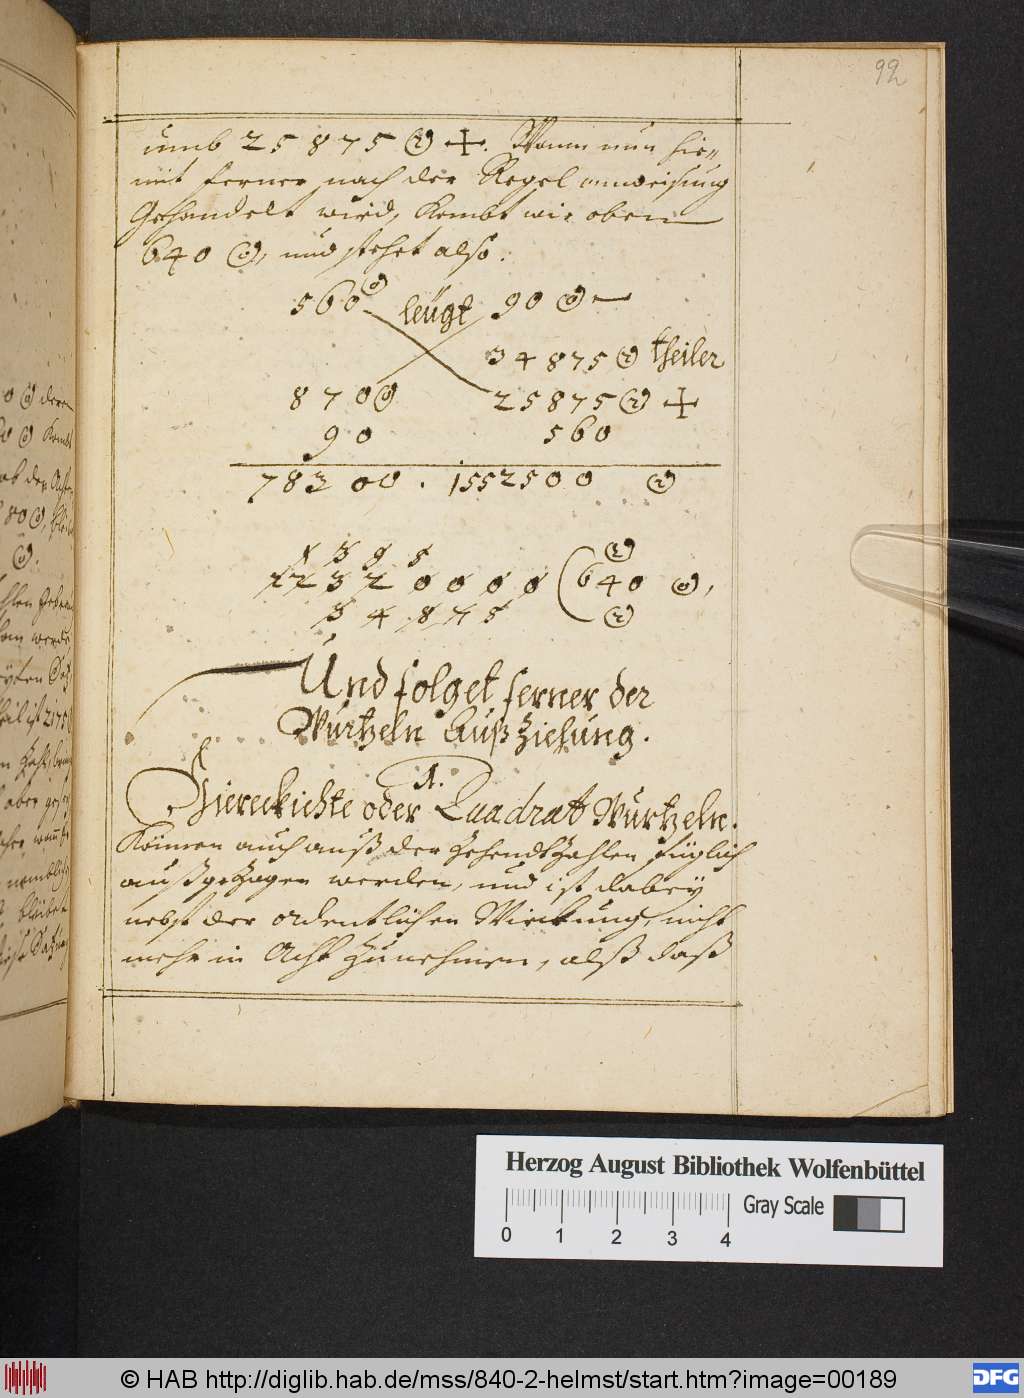 92
umb 25875 ② +. Wann nun hie=
mit ferner nach der Regel anweisung
Gehandelt wird, kombt wie oben
640 ⓪, und stehet also.
560 ⓪ leugt 90 ⓪ —
34875 ② theiler
870 ⓪ 25875 ② +
90 560
78300 . 1552500 ②
1 3 9 5
2 2 3 2 0 0 0 0 ( 640 ⓪,
②
3 4 8 7 5
②
Und folget ferner der
Wurtzeln Außziehung.
1.
Viereckichte oder Quadrat Wurtzeln.
Können auch auß der Zehendtzahlen füglich
außgezogen werden, und ist dabey
nebst der ordentlichen Wirckung, nicht
mehr in Acht zunehmen, alß daß
Herzog August Bibliothek Wolfenbüttel
0 1 2 3 4
Gray Scale
© HAB http://diglib.hab.de/mss/840-2-helmst/start.htm?image=00189
DFG